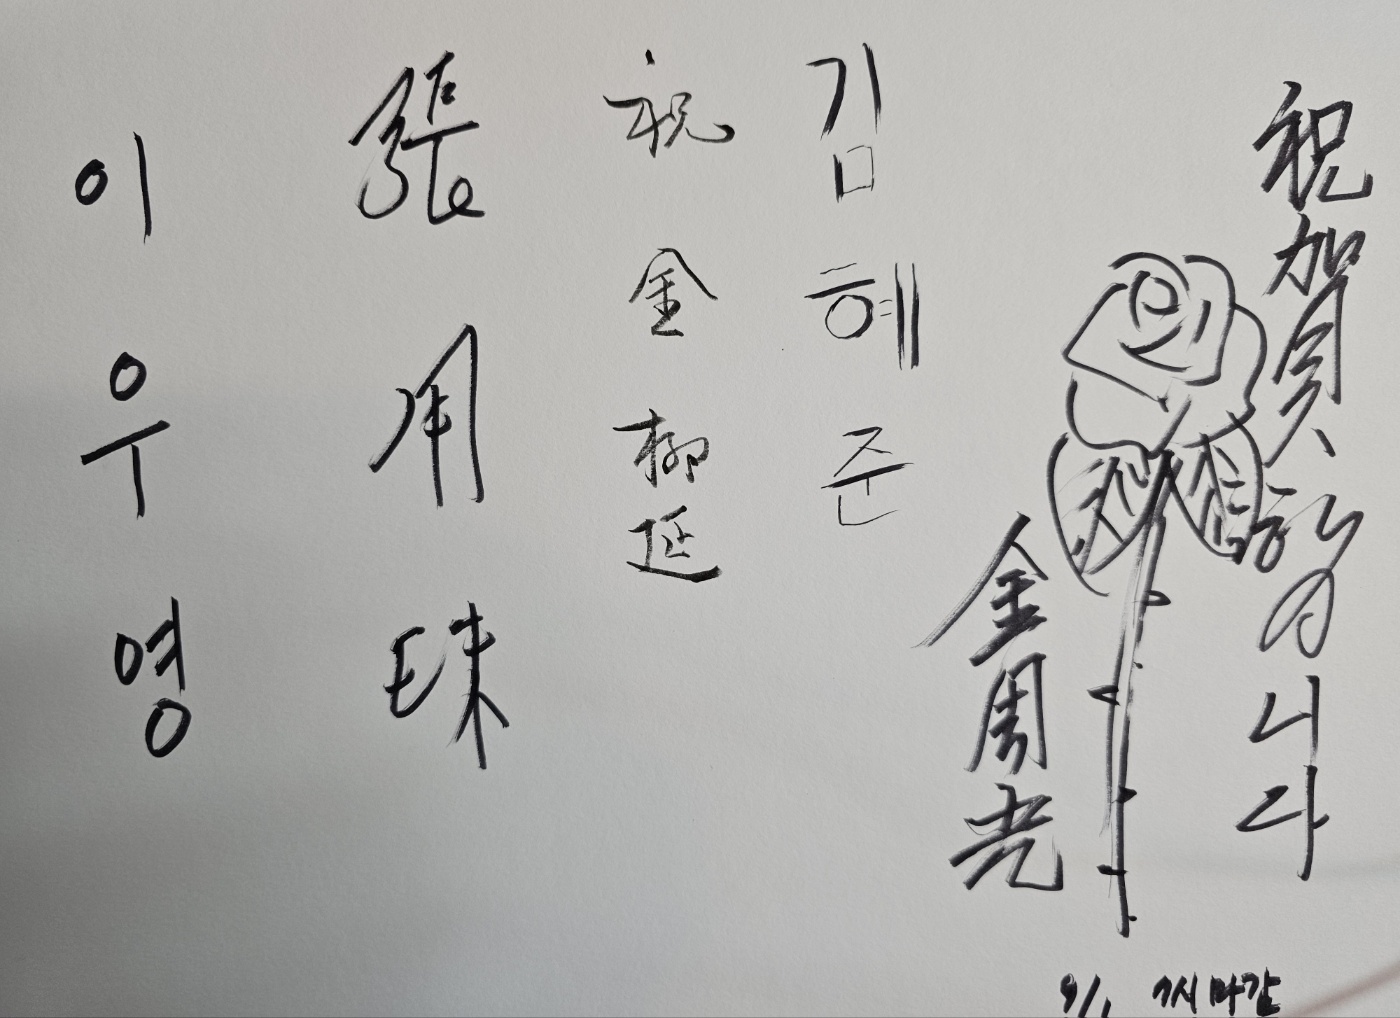 祝賀합니다
金周光
김혜준
祝 金柳延
張用珠
이우영
9/1 7시마감